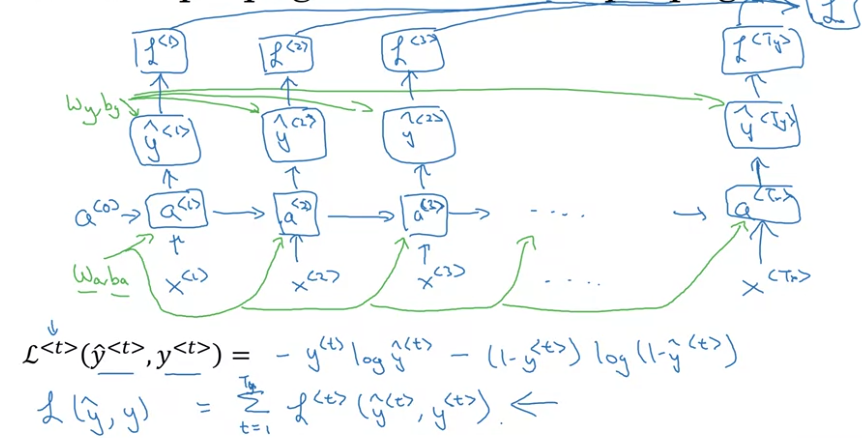 ℒ
ℒ<1> ℒ<2> ℒ<3> ℒ<Ty>
Wy, by
ŷ<1> ŷ<2> ŷ<2> ŷ<Ty>
a<0> → a<1> → a<2> → a<3> → .... → a<Tx>
Wa, ba
x<1> x<2> x<3> .... x<Tx>
ℒ<t>(ŷ<t>, y<t>) = - y<t> log ŷ<t> - (1-y<t>) log (1-ŷ<t>)
ℒ(ŷ, y) = Σ_{t=1}^{Ty} ℒ<t>(ŷ<t>, y<t>). ←